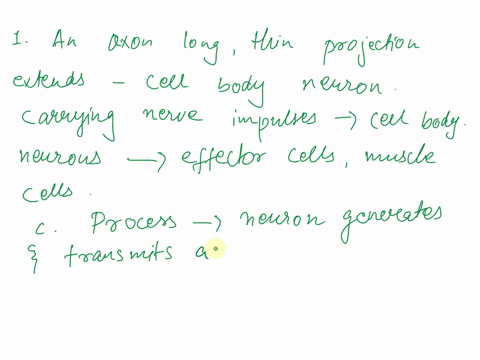 1. An axon long, thin projection
extends - cell body neuron.
Carrying nerve impulses → cell body.
neurons → effector cells, muscle
cells.
c. Process → neuron generates
& transmits a